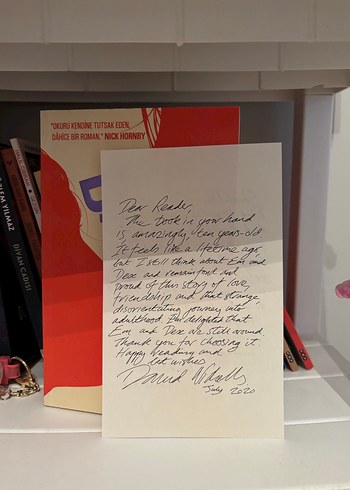 "OKURU KENDİNE TUTSAK EDEN,
DÂHİCE BİR ROMAN." NICK HORNBY
ÖZLEM YILMAZ
DİVAN CADISI
Dear Reader,
The book in your hand
is amazingly, ten years-old
It feels like a lifetime ago
but I still think about Em and
Dex and remain fond and
proud of this story of love,
friendship and that strange,
disorientating journey into
adulthood. I'm delighted that
Em and Dex are still around
Thank you for choosing it.
Happy Reading and
best wishes
David Nicholls
July 2020